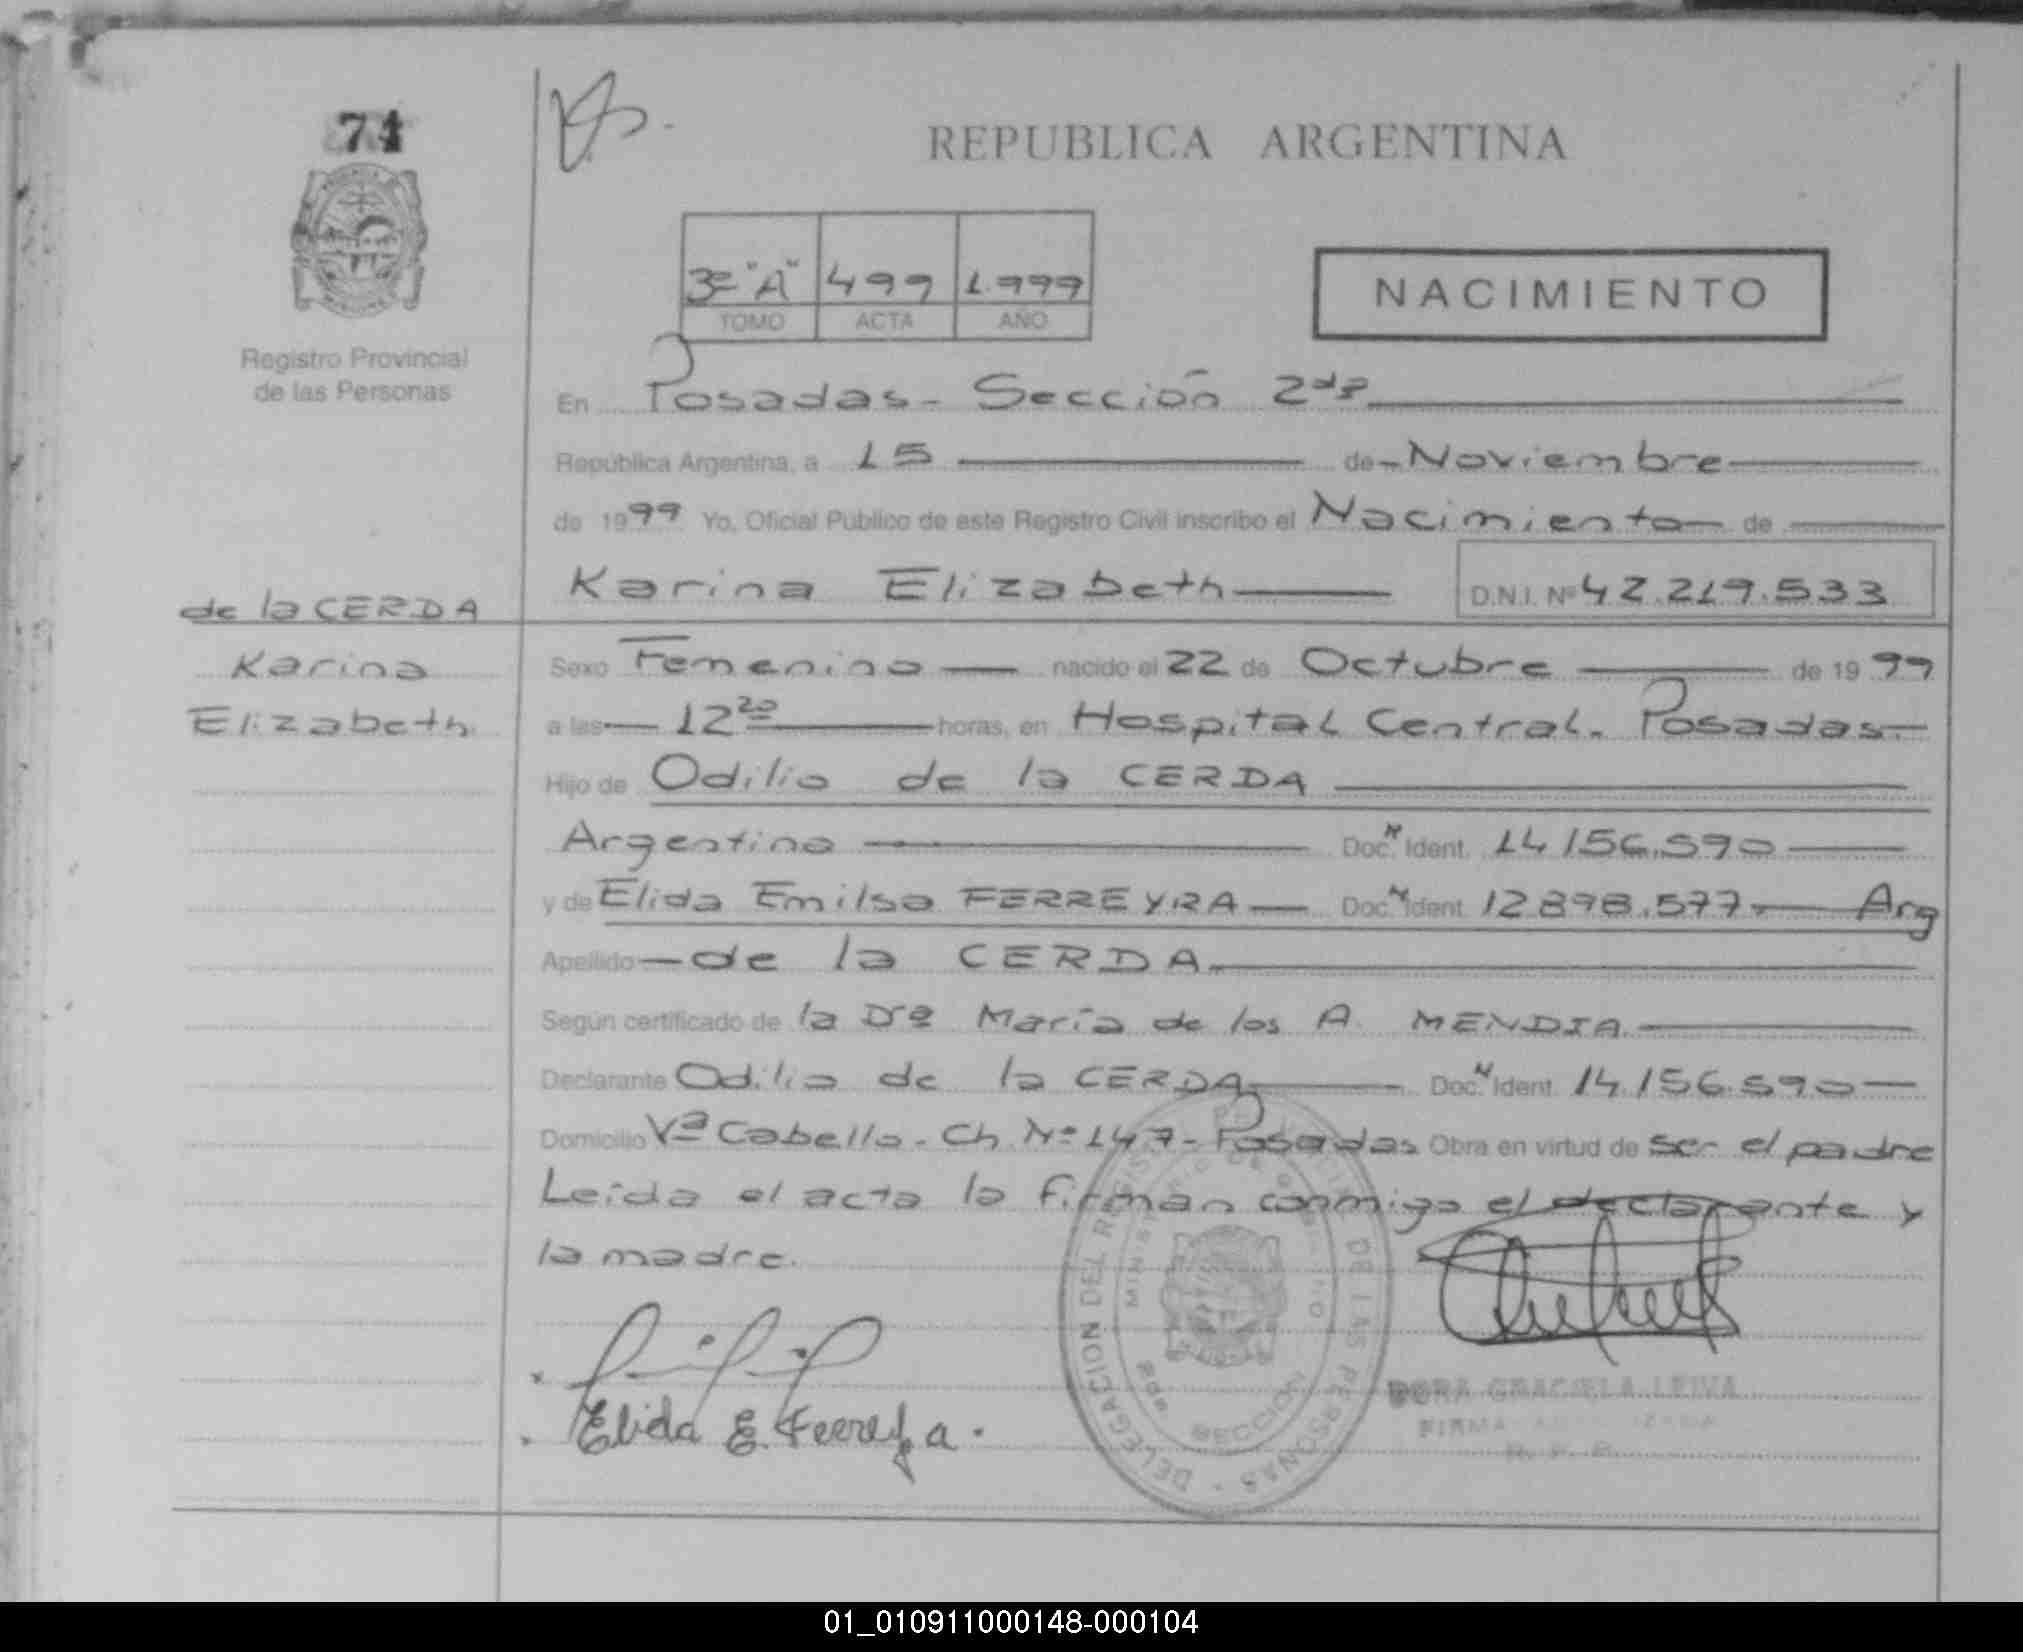 74
REPUBLICA ARGENTINA
3º "A" 499 1.999
TOMO ACTA AÑO
NACIMIENTO
Registro Provincial
de las Personas
En Posadas - Sección 2da
República Argentina, a 15 de Noviembre
de 1999 Yo, Oficial Público de este Registro Civil inscribo el Nacimiento de
Karina Elizabeth D.N.I. Nº 42.219.533
de la CERDA
Karina
Elizabeth
Sexo Femenino nacido el 22 de Octubre de 1999
a las 12 20 horas, en Hospital Central. Posadas
Hijo de Odilio de la CERDA
Argentino Doc. N Ident. 14.156.590
y de Elida Emilsa FERREYRA Doc. N Ident. 12.898.577 Arg
Apellido de la CERDA
Según certificado de la Drª María de los A. MENDIA
Declarante Odilio de la CERDA Doc. N Ident. 14.156.590
Domicilio Vª Cabello - Ch. Nº 147 - Posadas Obra en virtud de ser el padre
Leída el acta la firman conmigo el declarante y
la madre.
Elida E. Ferreyra.
DELEGACION DEL REGISTRO PROVINCIAL DE LAS PERSONAS
MINISTERIO DE GOBIERNO
2da. SECCION
DORA GRACIELA LEIVA
FIRMA AUTORIZADA
R. P. P.
01_010911000148-000104